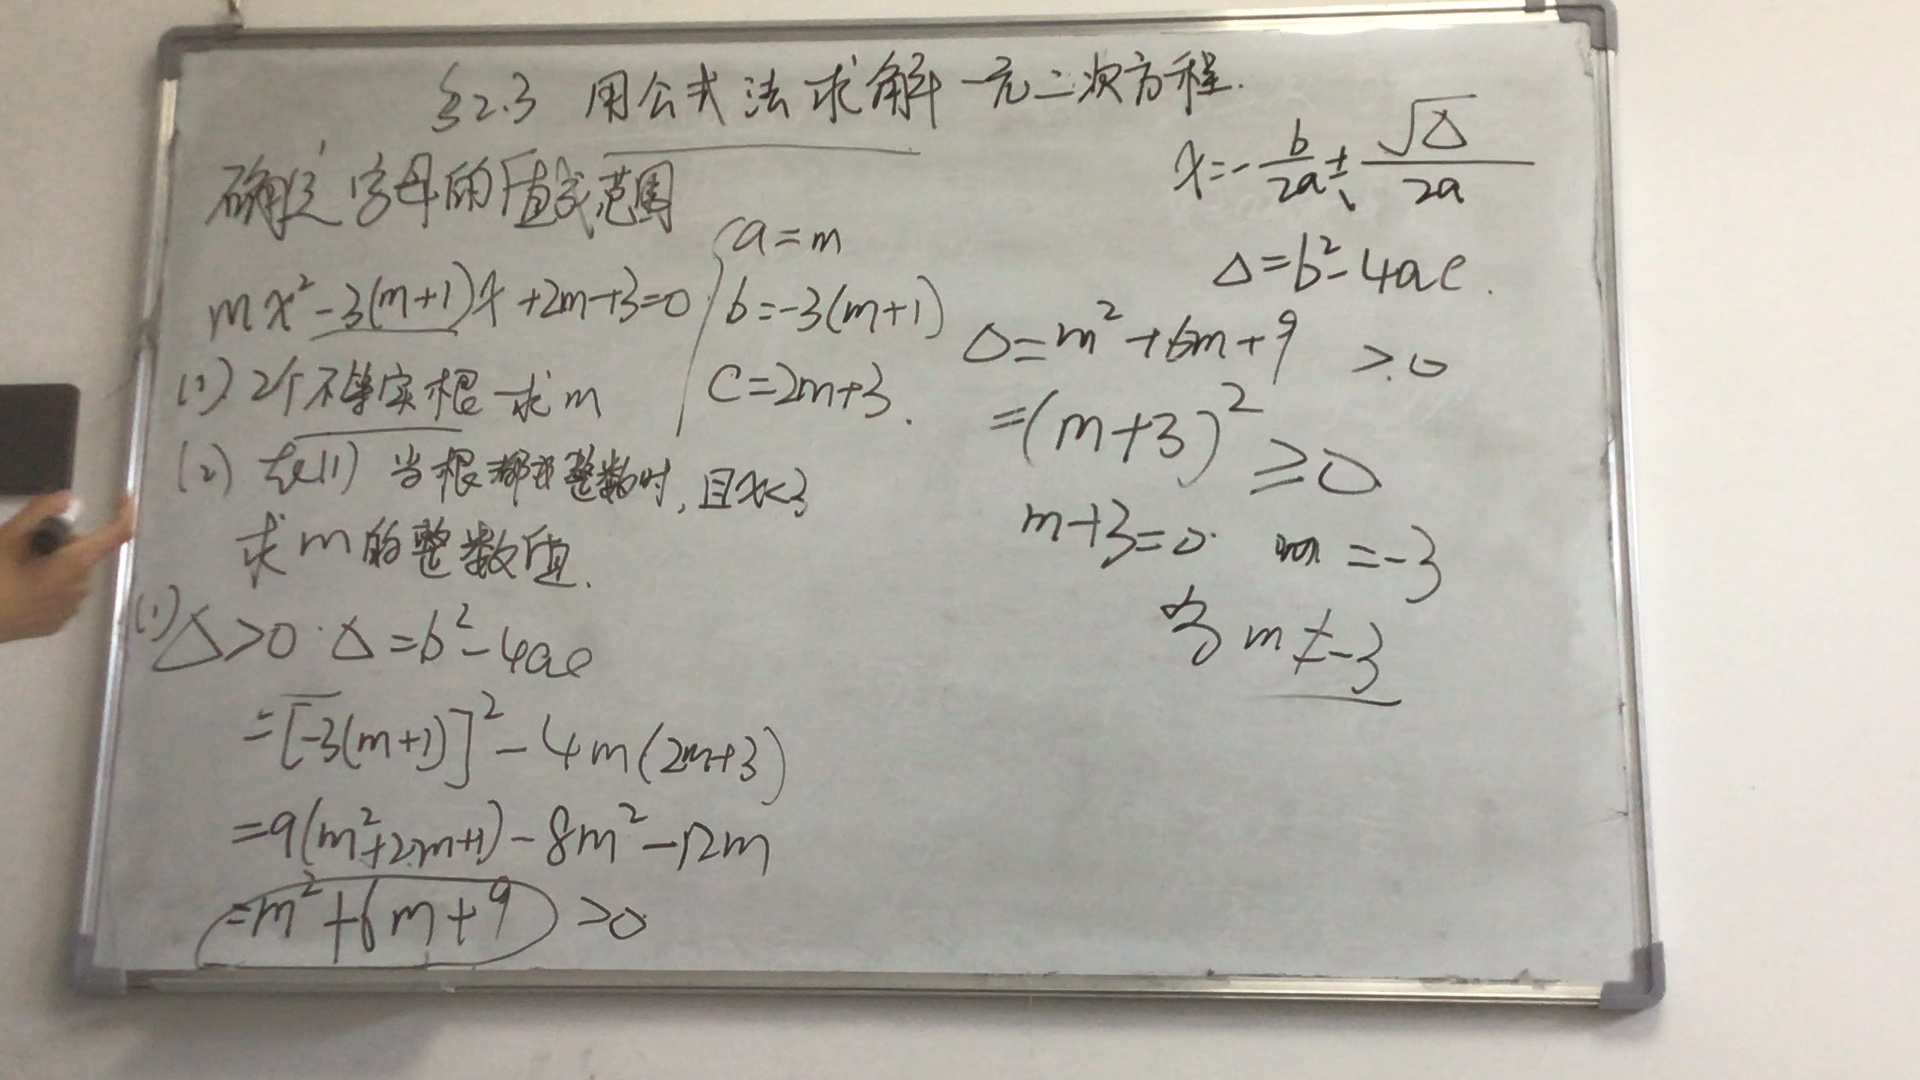 §2.3 用公式法求解一元二次方程.
确定字母的值或范围
mx²-3(m+1)x+2m+3=0
(1) 2个不等实根 求m
(2) 在(1) 当根都为整数时, 且x<3
求m的整数值.
a=m
b=-3(m+1)
c=2m+3.
(1) Δ>0. Δ=b²-4ac
=[-3(m+1)]²-4m(2m+3)
=9(m²+2m+1)-8m²-12m
=m²+6m+9>0
x=-b/2a±√Δ/2a
Δ=b²-4ac.
Δ=m²+6m+9 >0
=(m+3)²≥0
m+3=0. m=-3
当m≠-3